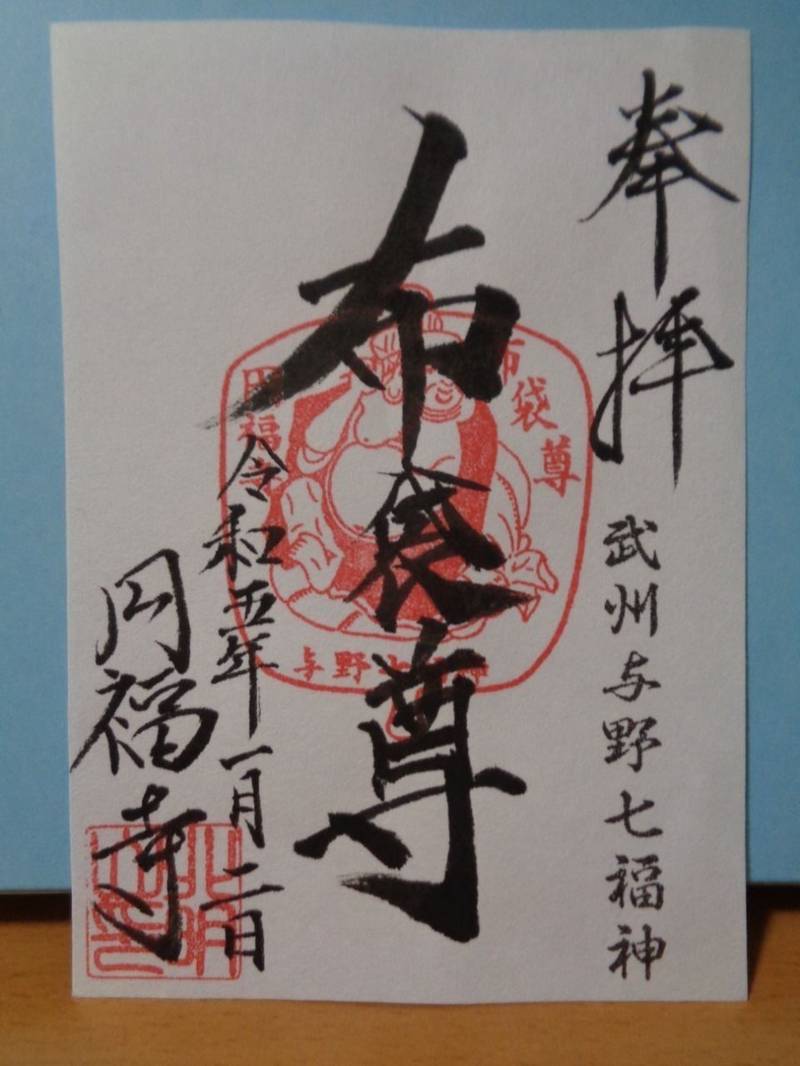 奉拝
武州与野七福神
布袋尊
令和五年一月二日
円福寺
布袋尊
円福
与野七福神